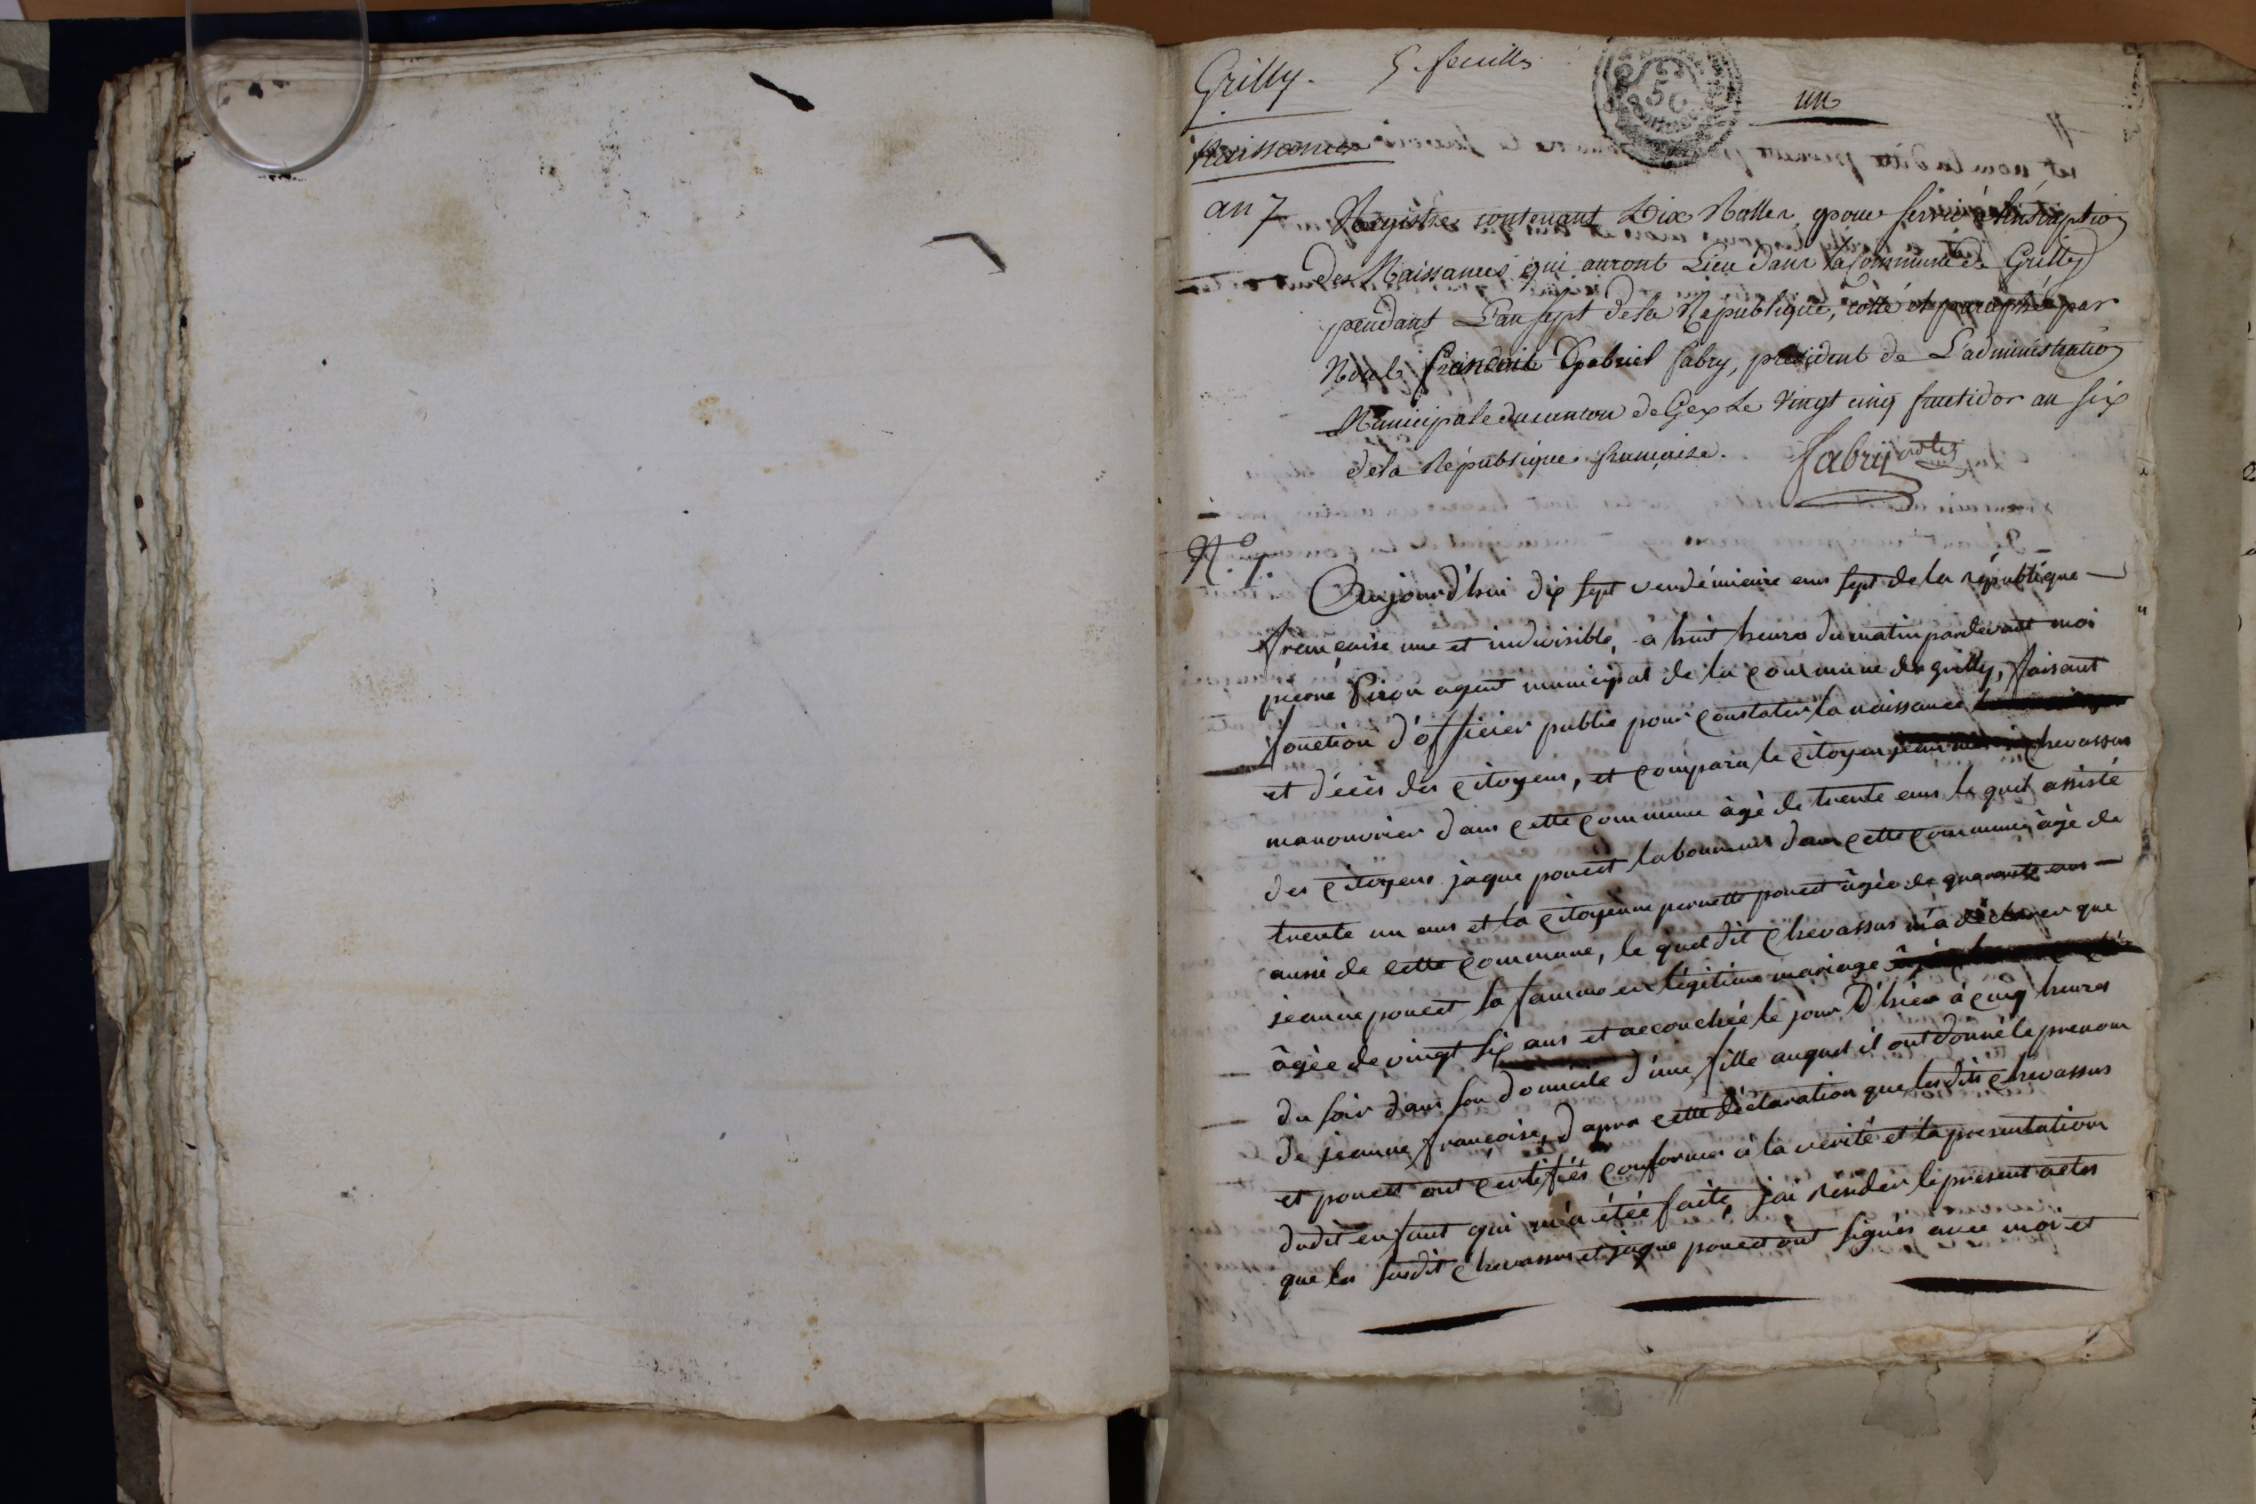 Grilly. 5. feuilles
50
un
Naissances
an 7 Registre contenant Dix Rolles, pour servir à l'inscription
des Naissances qui auront Lieu dans la Commune de Grilly
pendant L'an sept de la République, cotté et paraphé par
Noel francois Gabriel fabry, président de L'administration
Municipale du canton de Gex Le Vingt cinq fructidor an six
de la République française. fabry
N.º 1.
Aujourd'hui dix sept vendémiaire ans sept de la république
française une et indivisible, a huit heures du matin pardevant moi
pierre Piron agent municipal de la commune de grilly, faisant
fonction d'officier public pour constater la naissance
et décès des citoyens, et comparu le citoyen chevassus
manouvrier dans cette commune âgé de trente ans le quel assisté
des citoyens jaque poncet laboureur dans cette commune âgé de
trente un ans et la citoyenne pernette poncet âgée de quarante ans
aussi de cette commune, le quel dit chevassus m'a déclarer que
jeanne poncet sa famme en légitime mariage
âgée de vingt six ans et accouchée le jour D'hier à cinq heures
du soir dans son domicile d'une fille auquel il ont donné le prenom
de jeanne françoise, d'apres cette déclaration que lesdits chevassus
et poncet ont certifiés conformes à la vérité et la presentation
dudit enfant qui m'a étée faite, j'ai rendier le présent actes
que les susdit chevassus et jaque poncet ont signés avec moi et